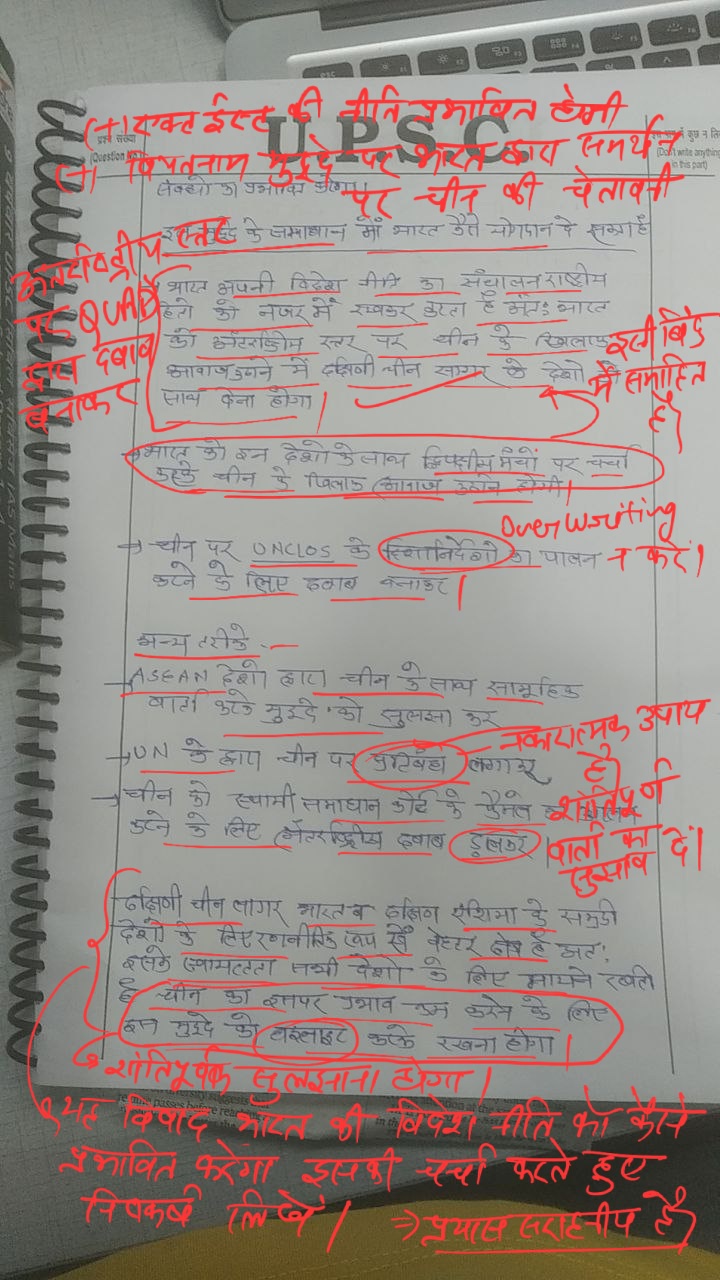 (+) एक्ट ईस्ट की नीति प्रभावित होगी
U.P.S.C.
प्रश्न संख्या
(Question No.)
(Don't write anything
in this part)
(+) वियतनाम मुद्दे पर भारत द्वारा समर्थन
पर चीन की चेतावनी
इस मुद्दे के समाधान में भारत कैसे योगदान दे सकता है
अन्तर्राष्ट्रीय स्तर
पर QUAD
द्वारा दबाब
बनाकर
भारत अपनी विदेश नीति का संचालन राष्ट्रीय
हितों को नजर में रखकर करता है अतः भारत
को अंतर्राष्ट्रीय स्तर पर चीन के खिलाफ
आवाज उठाने में दक्षिणी चीन सागर के देशों का
साथ देना होगा।
इसी बिंदु
में समाहित
है
→ भारत को इन देशों के साथ द्विपक्षीय मंचों पर चर्चा
करके चीन के खिलाफ आवाज उठानी होगी।
Over writing
न करें।
→ चीन पर UNCLOS के का पालन
करने के लिए दबाब बनाकर।
अन्य तरीके :-
→ ASEAN देशों द्वारा चीन के साथ सामूहिक
वार्ता करके मुद्दे को सुलझा कर
→ UN के द्वारा चीन पर लगाकर
नकारात्मक उपाय
है
शांतिपूर्ण
वार्ता का
सुझाव दें।
→ चीन को स्थायी समाधान कोर्ट के फैसले
करने के लिए अंतर्राष्ट्रीय दबाब डालकर
दक्षिणी चीन सागर भारत व दक्षिण एशिया के समुद्री
देशों के लिए रणनीतिक रूप से है अतः
इसके सभी देशों के लिए मायने रखती
है चीन का इसपर प्रभाव कम करने के लिए
इस मुद्दे को हाइलाइट करके रखना होगा।
शांतिपूर्वक सुलझाना होगा।
यह विवाद भारत की विदेश नीति को कैसे
प्रभावित करेगा इसकी चर्चा करते हुए
निष्कर्ष लिखें। ⇒ प्रयास सराहनीय है